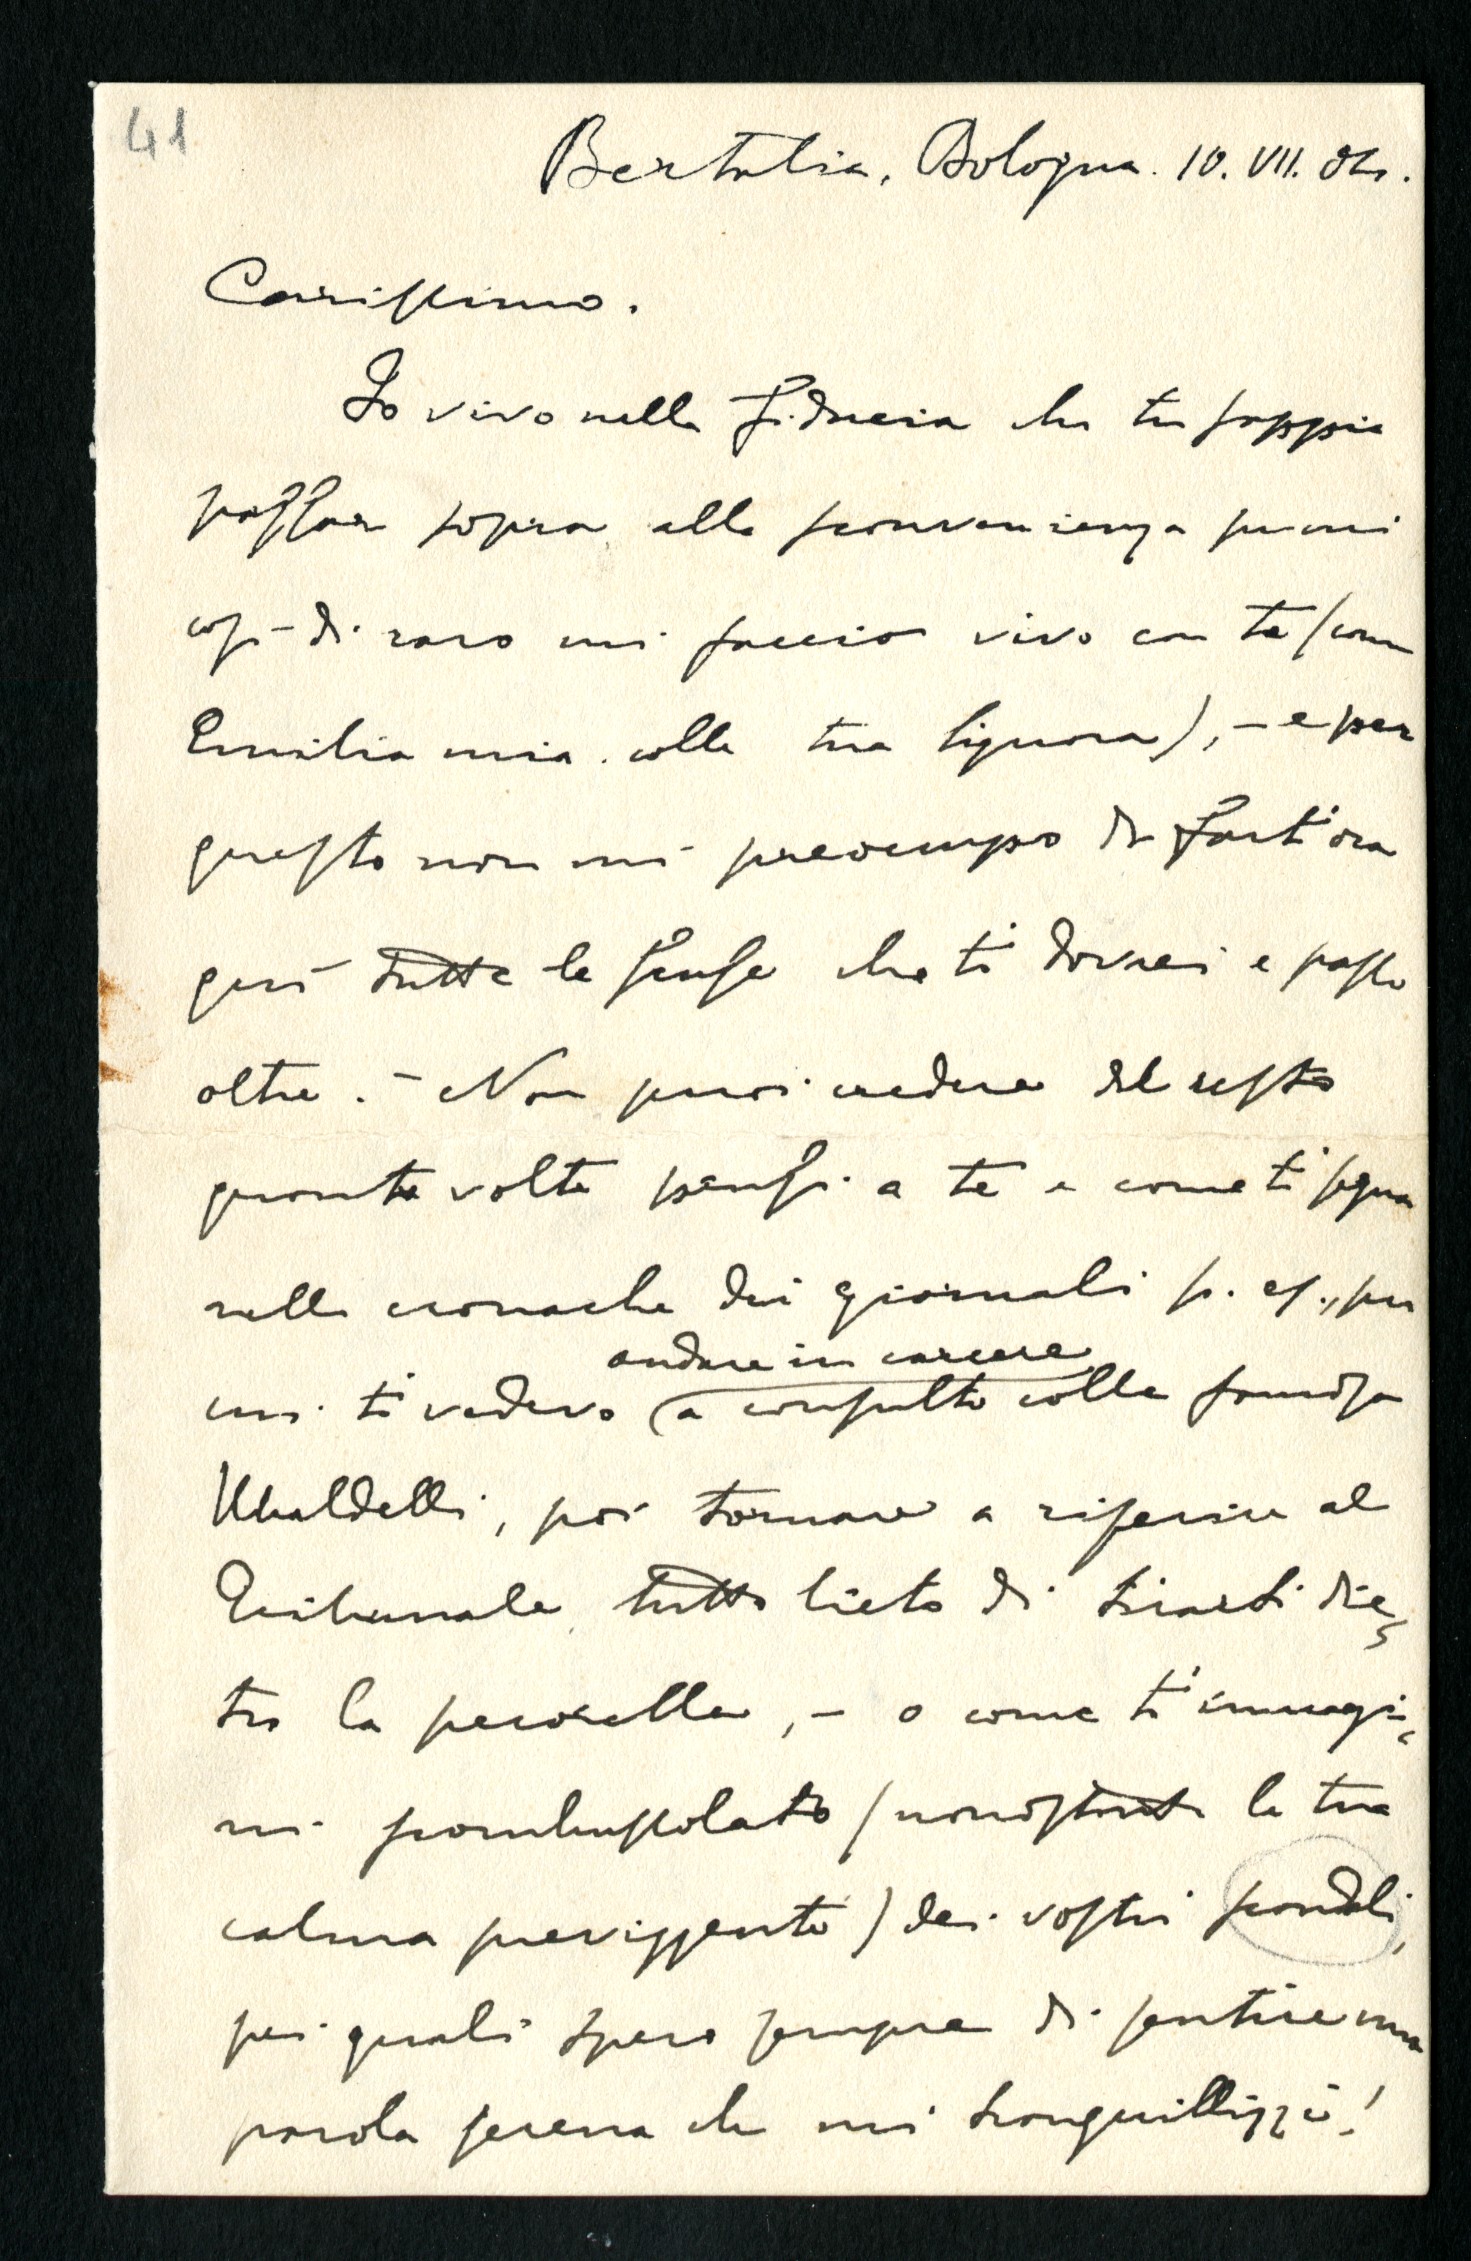 41
Bertalia, Bologna. 10. VII. 04.
Carissimo.
Io vivo nella fiducia che tu sappia
passar sopra alla sconvenienza per cui
così di raro mi faccio vivo con te (come
Emilia mia colla tua Signora), – e per
questo non mi preoccupo di farti ora
qui tutte le scuse che ti dovrei e passo
oltre. – Non puoi credere del resto
quante volte pensi a te e come ti segua
nelle cronache dei giornali p. es., per
cui ti vedevo
andare in carcere
a consulto colla famosa
Ubaldelli, poi tornare a riferire al
Tribunale, tutto lieto di tirarti die
tro la pecorella, – o come ti immagi
ni scombussolato (nonostante la tua
calma previggente) dei vostri scandali,
pei quali spero sempre di sentire una
parola serena che mi tranquillizzi!